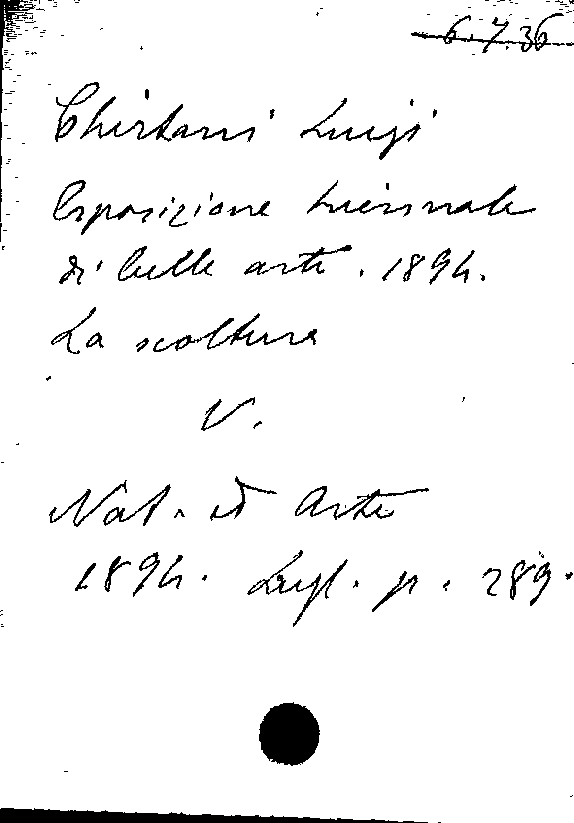 6.7.36
Chirtani Luigi
Esposizione triennale
di belle arti. 1894.
La scoltura
V.
Nat. ed Arte
1894. Lugl. p. 289.